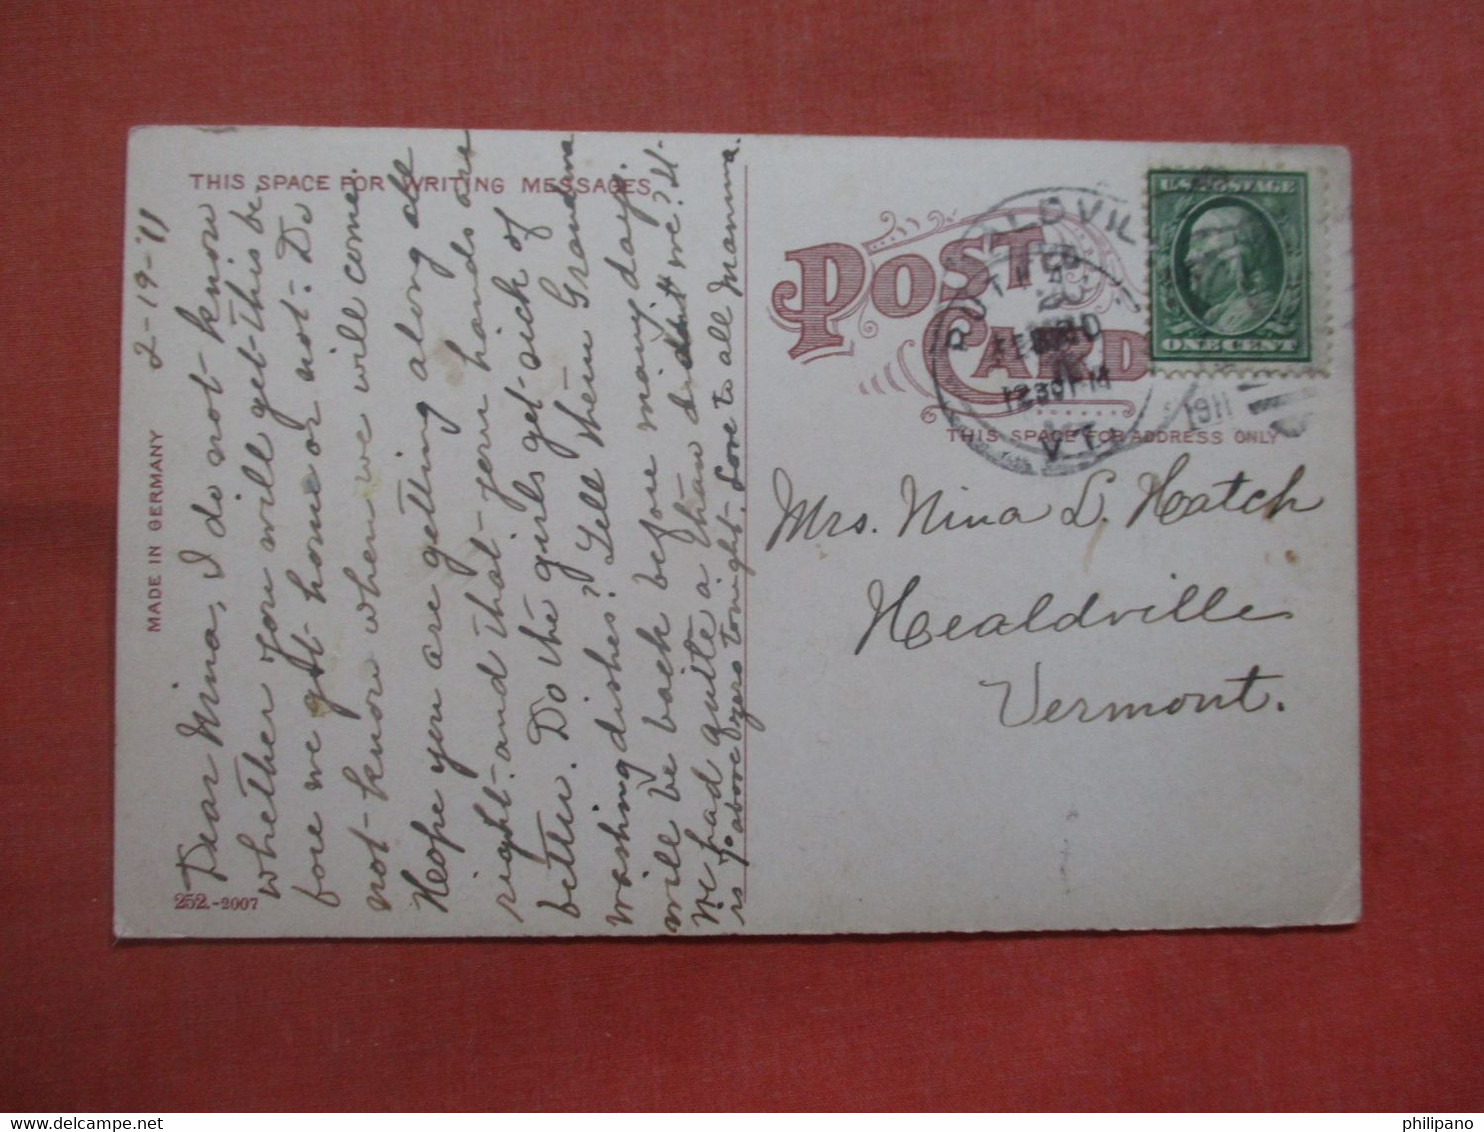 THIS SPACE FOR WRITING MESSAGES.
2-19-'11
Dear Nina, I do not know
whether you will get this be
fore we get home or not. Do
not know when we will come.
Hope you are getting along all
right and that your hands are
better. Do the girls get sick of
washing dishes? Tell them Grandma
will be back before many days.
We had quite a thaw didn't we? It
is 70 above zero tonight. Love to all Mamma.
MADE IN GERMANY
252.-2007
POST CARD
THIS SPACE FOR ADDRESS ONLY
HEALDVIL
RUTLAND
FEB 20
12 30 PM
VT.
1911
U.S. POSTAGE
ONE CENT
Mrs. Nina L. Hatch
Healdville
Vermont.
philipano
delcampe.net